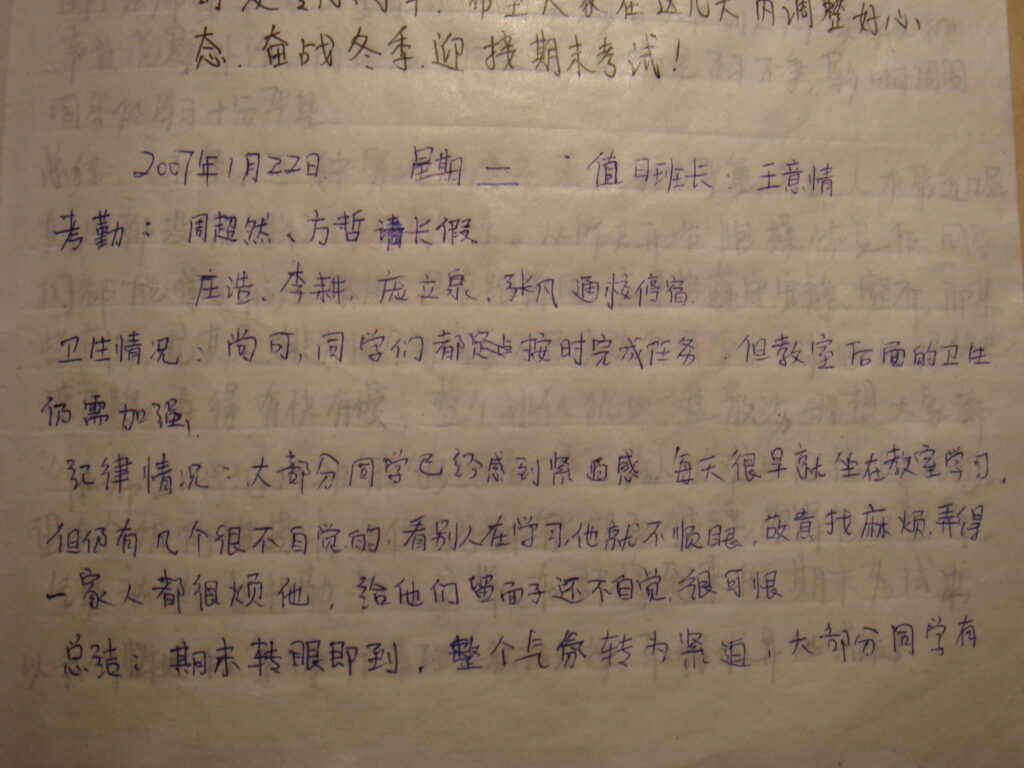 希望大家在这几天内调整好心
态.奋战冬季.迎接期末考试!
2007年1月22日 星期一 值日班长:王意情
考勤:周超然、方哲请长假
庄浩、李耕、庞立泉、张凡 通校停宿
卫生情况:尚可,同学们都能按时完成任务.但教室后面的卫生
仍需加强.
纪律情况:大部分同学已经感到紧迫感.每天很早就坐在教室学习.
但仍有几个很不自觉的.看别人在学习他就不顺眼.故意找麻烦.弄得
一家人都很烦他.给他们留面子还不自觉.很可恨
总结:期末转眼即到.整个气氛转为紧迫,大部分同学有